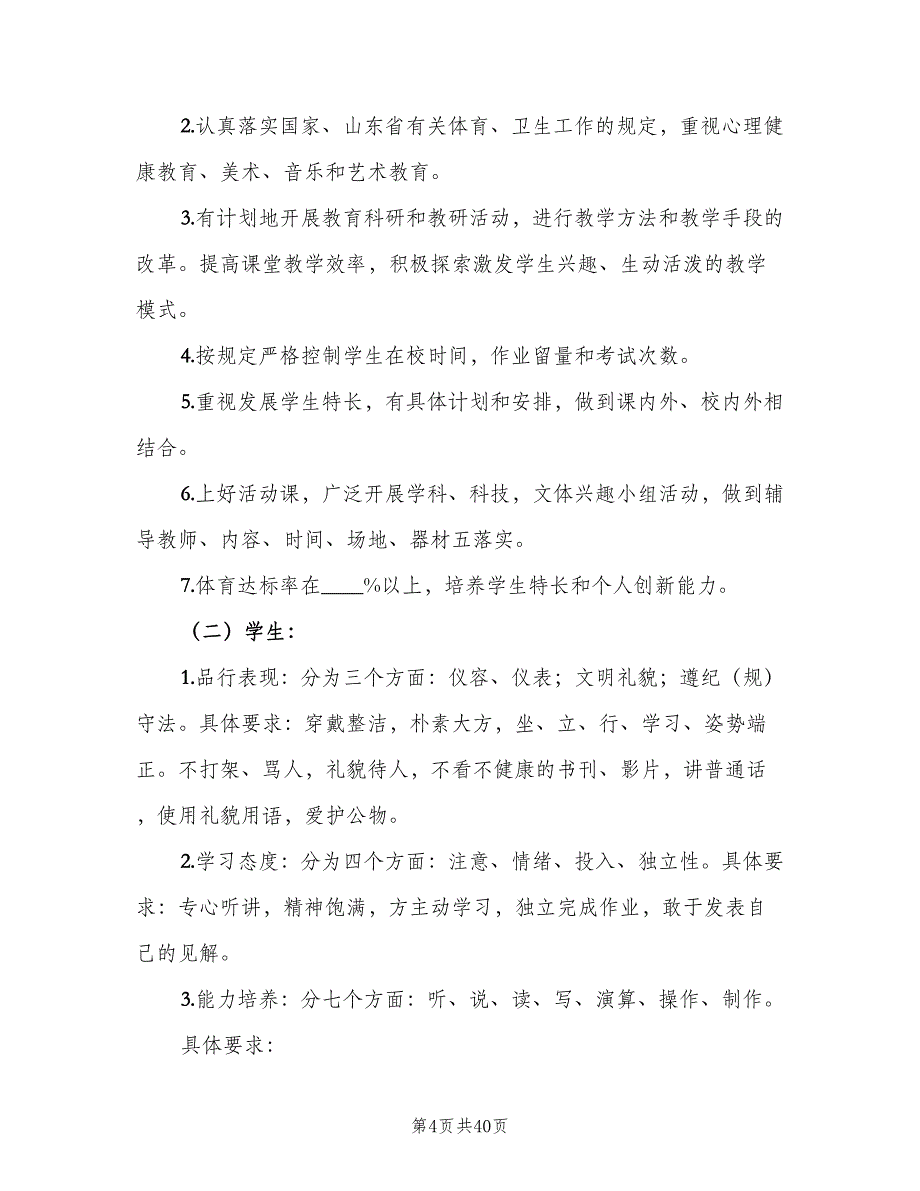 2.认真落实国家、山东省有关体育、卫生工作的规定，重视心理健
康教育、美术、音乐和艺术教育。
3.有计划地开展教育科研和教研活动，进行教学方法和教学手段的
改革。提高课堂教学效率，积极探索激发学生兴趣、生动活泼的教学
模式。
4.按规定严格控制学生在校时间，作业留量和考试次数。
5.重视发展学生特长，有具体计划和安排，做到课内外、校内外相
结合。
6.上好活动课，广泛开展学科、科技，文体兴趣小组活动，做到辅
导教师、内容、时间、场地、器材五落实。
7.体育达标率在____%以上，培养学生特长和个人创新能力。
（二）学生：
1.品行表现：分为三个方面：仪容、仪表；文明礼貌；遵纪（规）
守法。具体要求：穿戴整洁，朴素大方，坐、立、行、学习、姿势端
正。不打架、骂人，礼貌待人，不看不健康的书刊、影片，讲普通话
，使用礼貌用语，爱护公物。
2.学习态度：分为四个方面：注意、情绪、投入、独立性。具体要
求：专心听讲，精神饱满，方主动学习，独立完成作业，敢于发表自
己的见解。
3.能力培养：分七个方面：听、说、读、写、演算、操作、制作。
具体要求：
第4页共40页